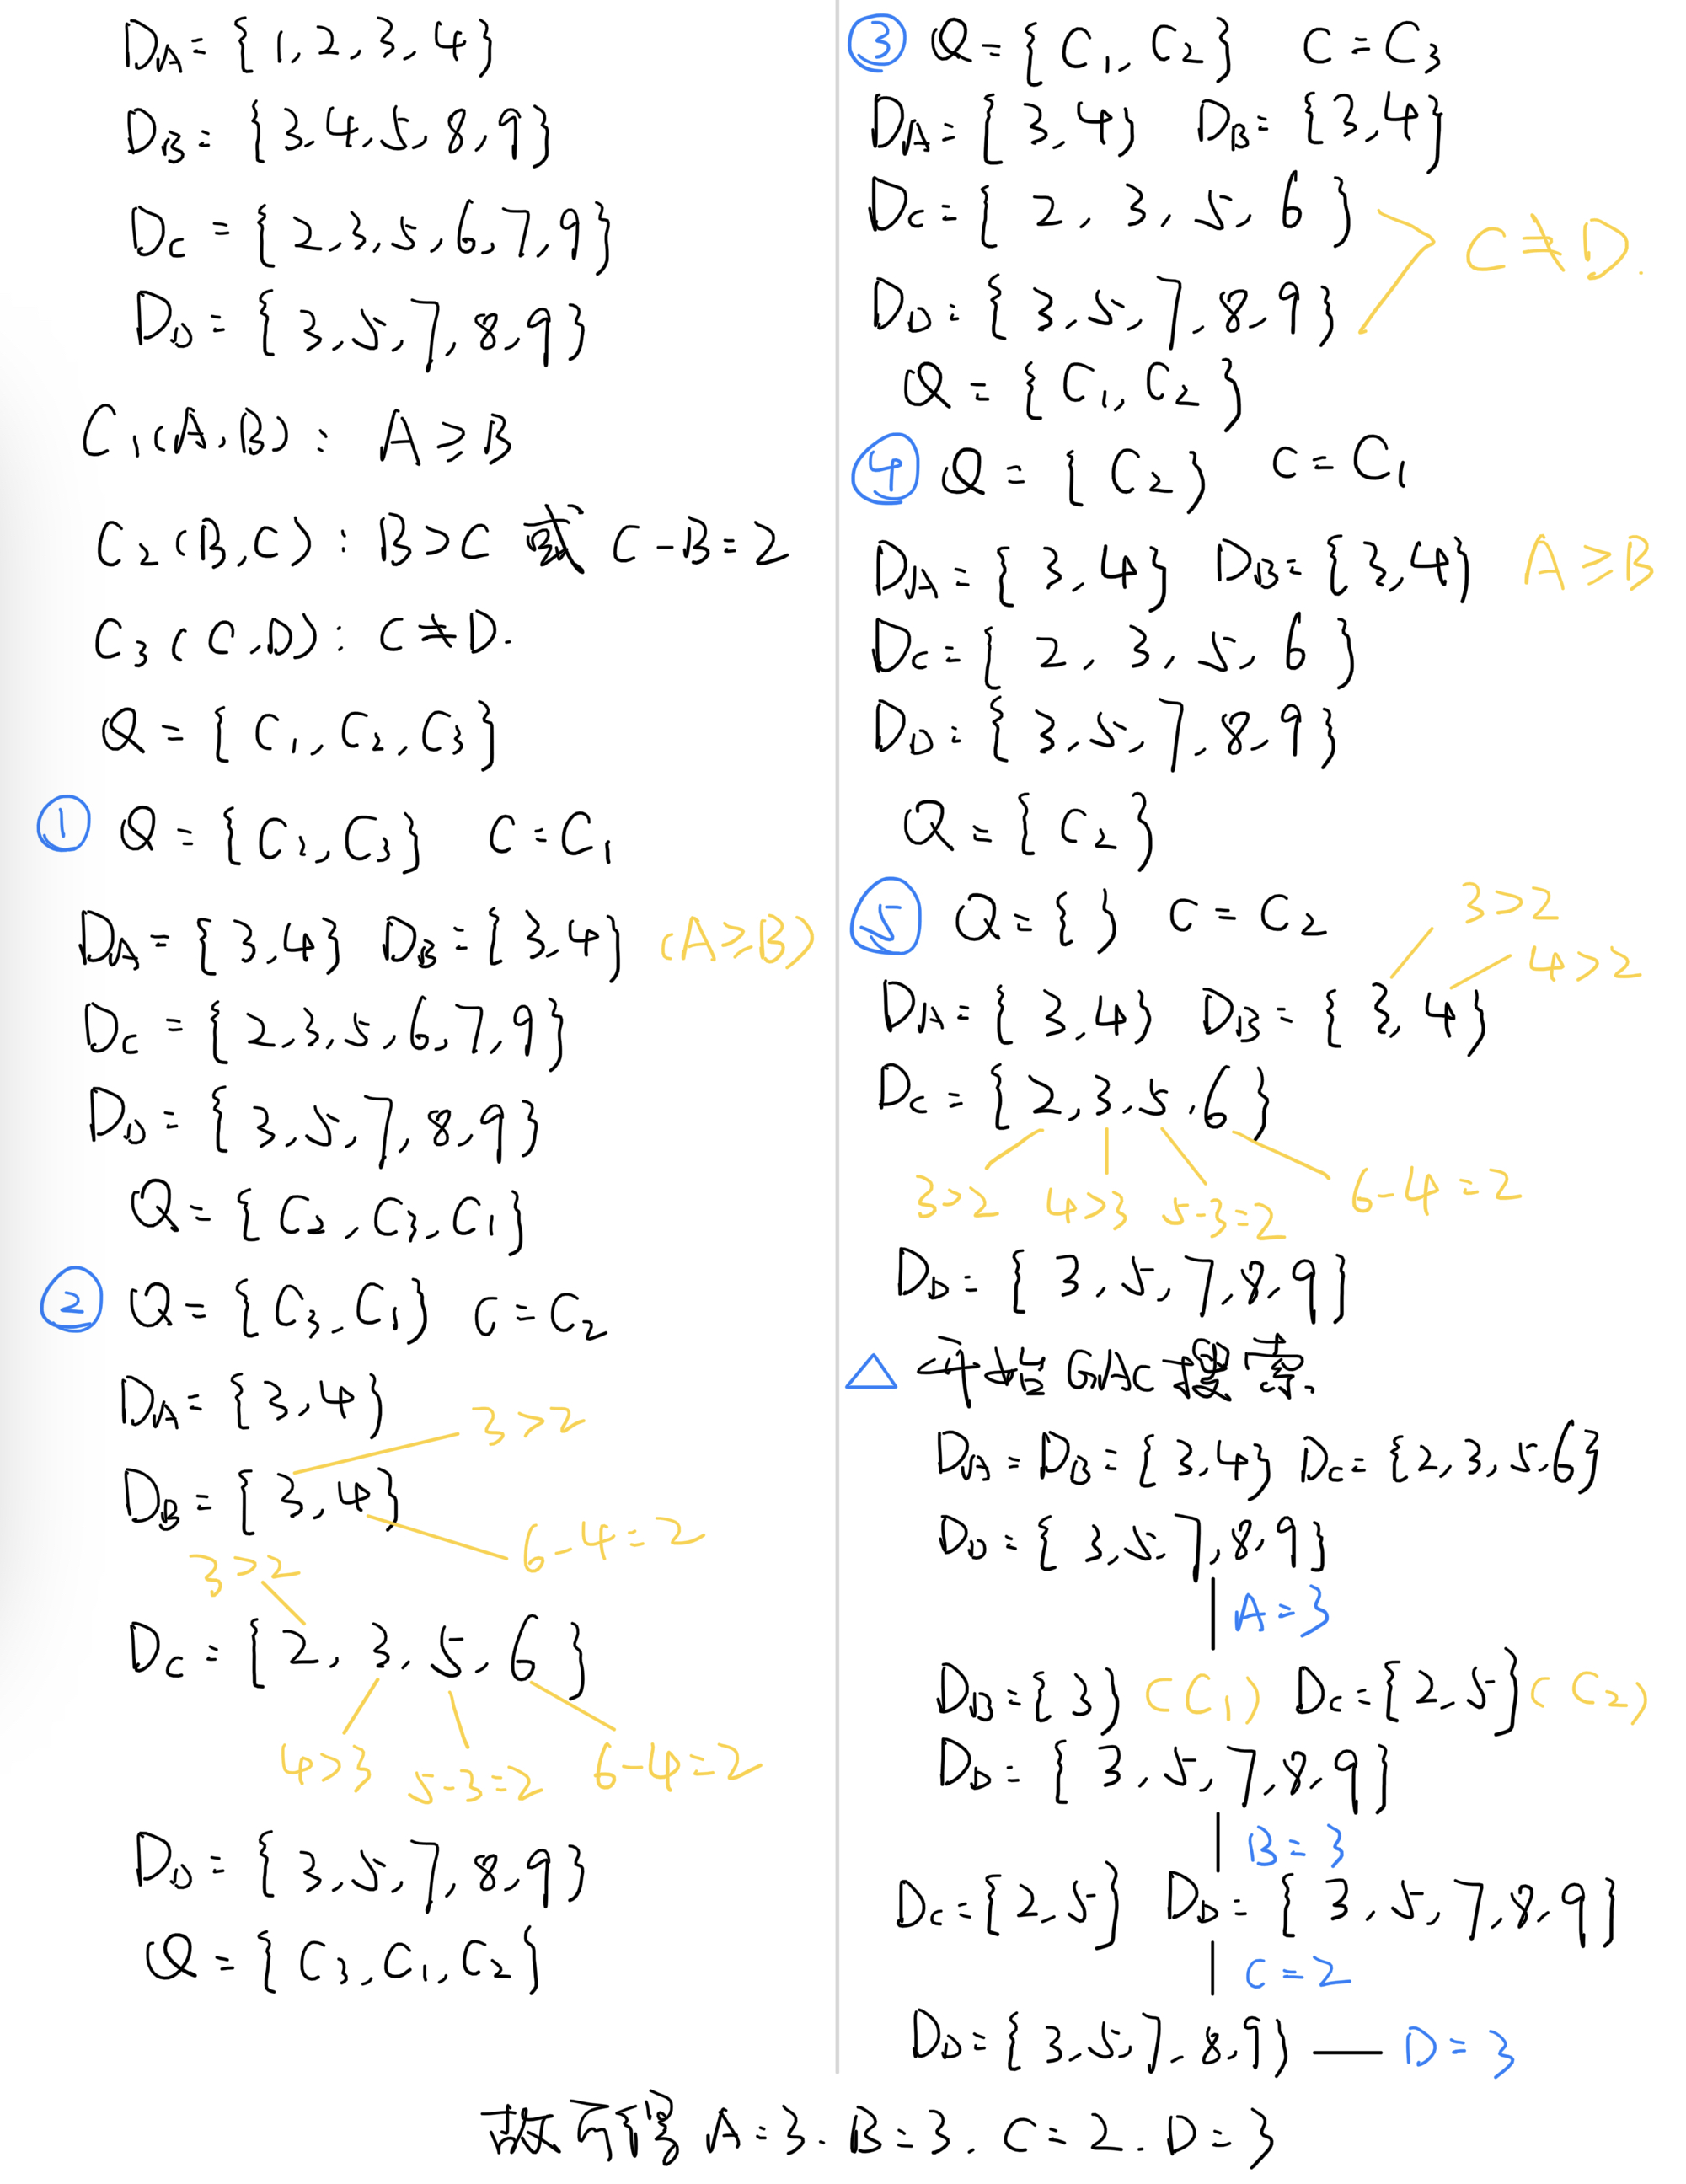 D_A = {1, 2, 3, 4}
D_B = {3, 4, 5, 8, 9}
D_C = {2, 3, 5, 6, 7, 9}
D_D = {3, 5, 7, 8, 9}
C₁(A, B): A ≥ B
C₂(B, C): B > C 或 C - B = 2
C₃(C, D): C ≠ D.
Q = {C₁, C₂, C₃}
① Q = {C₂, C₃} C = C₁
D_A = {3, 4} D_B = {3, 4} (A ≥ B)
D_C = {2, 3, 5, 6, 7, 9}
D_D = {3, 5, 7, 8, 9}
Q = {C₂, C₃, C₁}
② Q = {C₃, C₁} C = C₂
D_A = {3, 4}
3 > 2
D_B = {3, 4}
6 - 4 = 2
3 > 2
D_C = {2, 3, 5, 6}
4 > 3 5 - 3 = 2 6 - 4 = 2
D_D = {3, 5, 7, 8, 9}
Q = {C₃, C₁, C₂}
③ Q = {C₁, C₂} C = C₃
D_A = {3, 4} D_B = {3, 4}
D_C = {2, 3, 5, 6}
C ≠ D.
D_D = {3, 5, 7, 8, 9}
Q = {C₁, C₂}
④ Q = {C₂} C = C₁
D_A = {3, 4} D_B = {3, 4} A ≥ B
D_C = {2, 3, 5, 6}
D_D = {3, 5, 7, 8, 9}
Q = {C₂}
⑤ Q = { } C = C₂
3 > 2
4 > 2
D_A = {3, 4} D_B = {3, 4}
D_C = {2, 3, 5, 6}
3 > 2 4 > 3 5 - 3 = 2 6 - 4 = 2
D_D = {3, 5, 7, 8, 9}
△ 开始 GAC 搜索.
D_A = D_B = {3, 4} D_C = {2, 3, 5, 6}
D_D = {3, 5, 7, 8, 9}
A = 3
D_B = {3} (C₁) D_C = {2, 5} (C₂)
D_D = {3, 5, 7, 8, 9}
B = 3
D_C = {2, 5} D_D = {3, 5, 7, 8, 9}
C = 2
D_D = {3, 5, 7, 8, 9} — D = 3
故可得 A = 3. B = 3. C = 2. D = 3